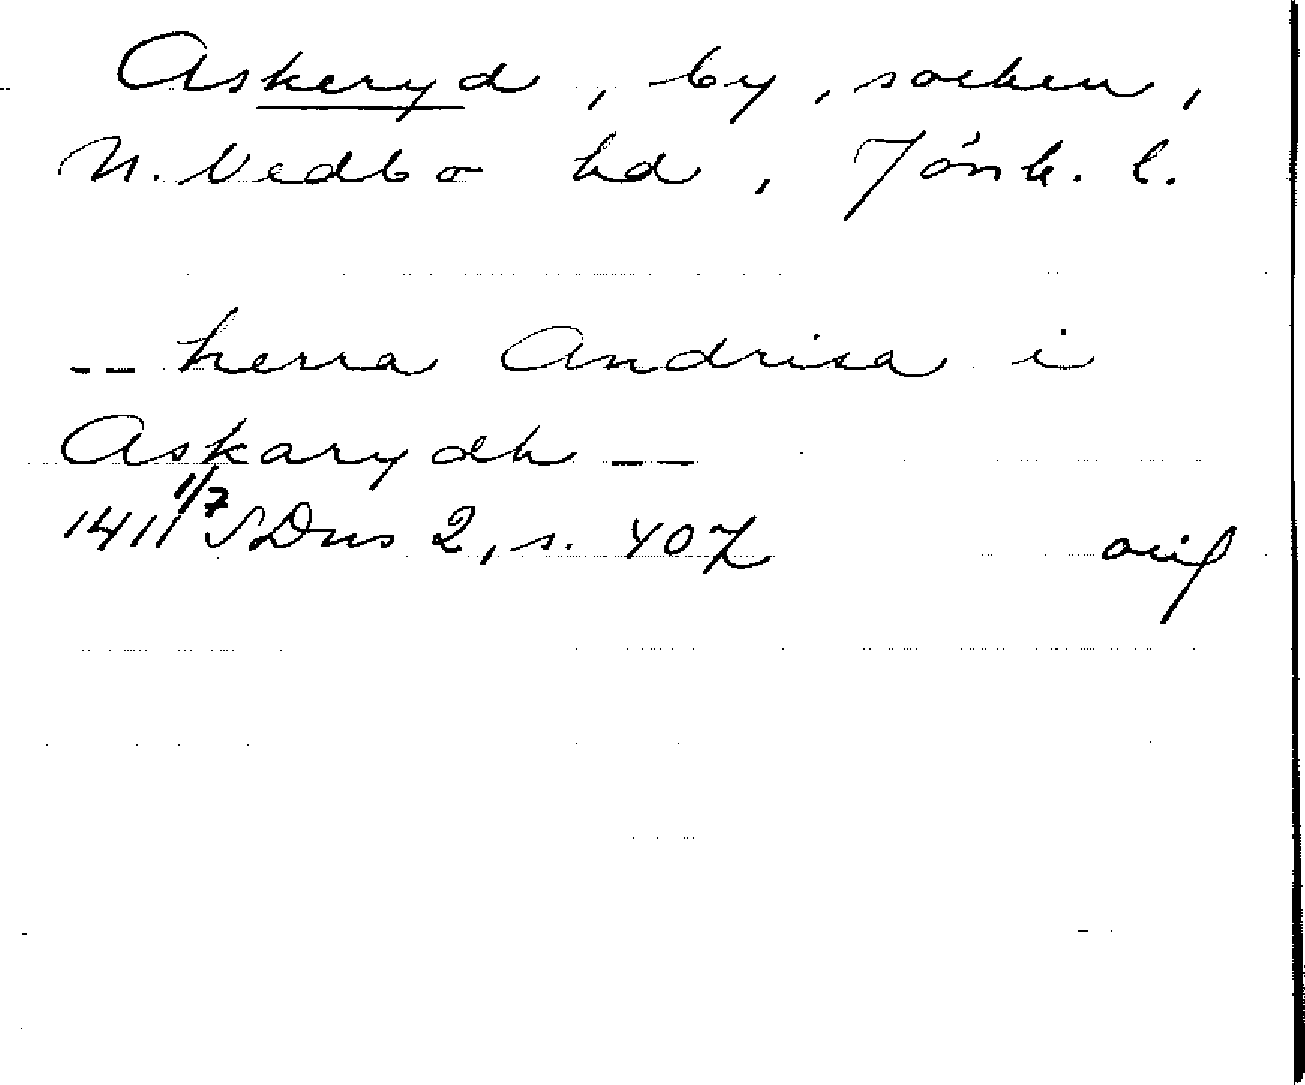 Askeryd, by, socken,
N. Vedbo hd, Jönk. l.
-- herra Andrisa i
Askarydh --
1411 1/7 SDns 2, s. 407 orig